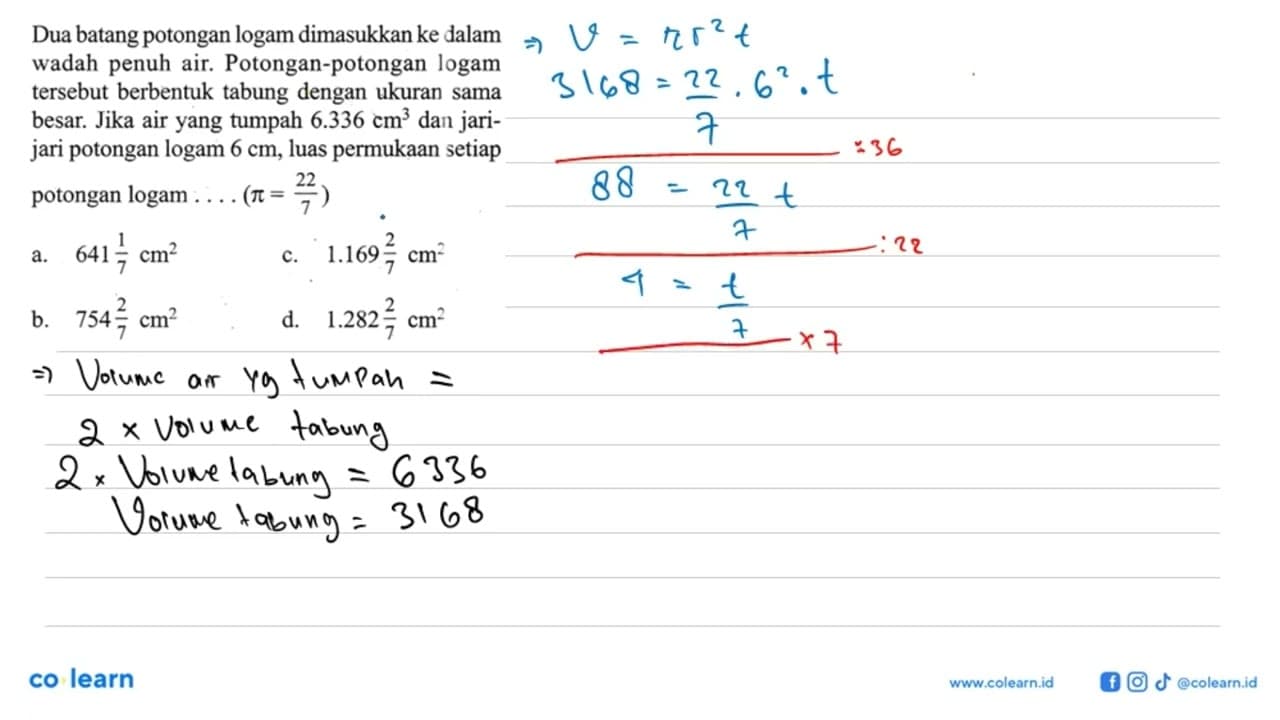 Dua batang potongan logam dimasukkan ke dalam
wadah penuh air. Potongan-potongan logam
tersebut berbentuk tabung dengan ukuran sama
besar. Jika air yang tumpah 6.336 cm³ dan jari-
jari potongan logam 6 cm, luas permukaan setiap
potongan logam . . . . (π = 22/7)
a. 641 1/7 cm² c. 1.169 2/7 cm²
b. 754 2/7 cm² d. 1.282 2/7 cm²
⇒ Volume air yg tumpah =
2 × Volume tabung
2 × Volume tabung = 6336
Volume tabung = 3168
⇒ V = πr²t
3168 = 22/7 . 6² . t
: 36
88 = 22/7 t
: 22
4 = t/7
× 7
co learn
www.colearn.id
@colearn.id